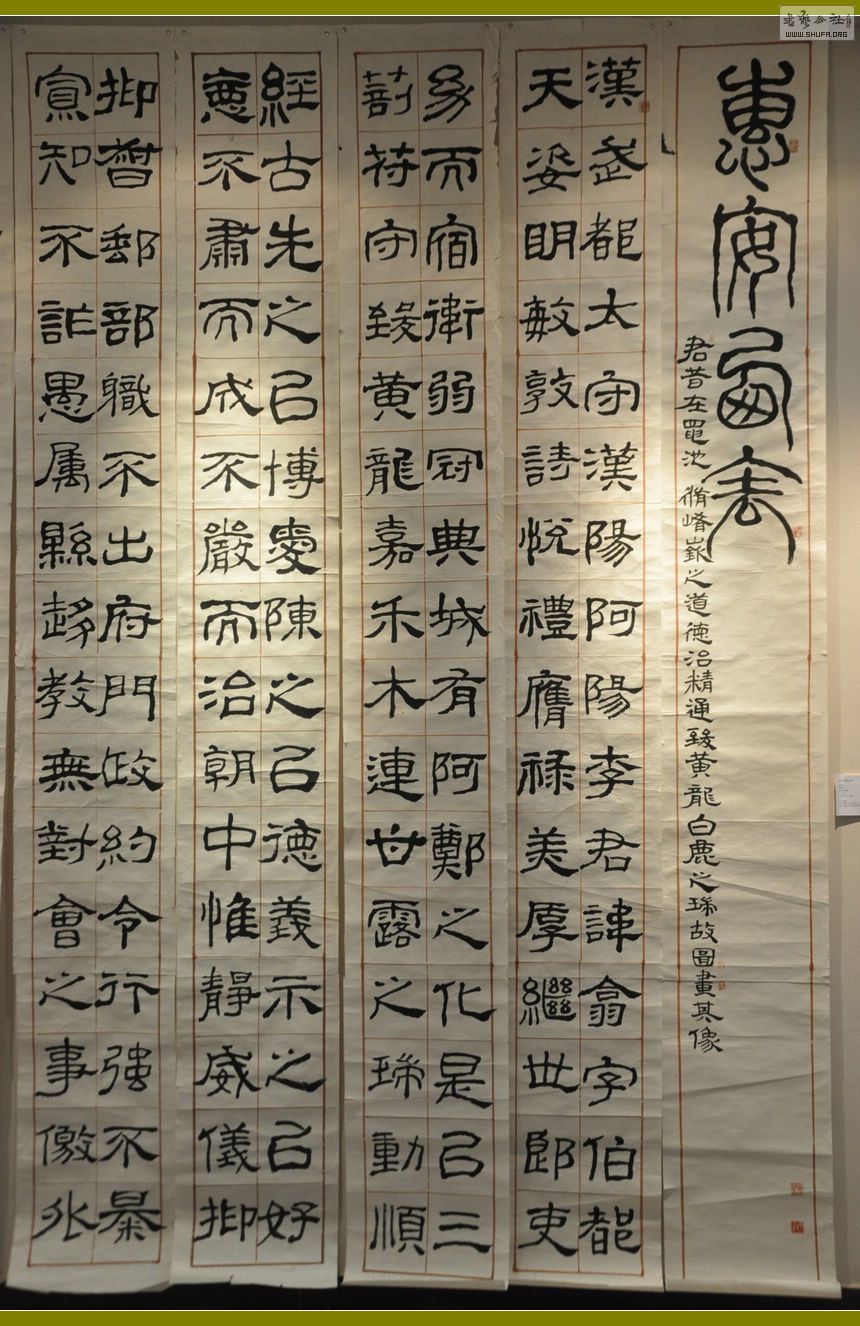 惠安西表
君昔在黽池脩崤嶔之道德治精通致黃龍白鹿之瑞故圖畫其像
漢武都太守漢陽阿陽李君諱翕字伯都
天姿明敏敦詩悅禮膺祿美厚繼世郎吏
幼而宿衛弱冠典城有阿鄭之化是以三
剖符守致黃龍嘉禾木連甘露之瑞動順
經古先之以博愛陳之以德義示之以好
惡不肅而成不嚴而治朝中惟靜威儀抑
抑督郵部職不出府門政約令行强不暴
寡知不詐愚屬縣趍教無對會之事儌外
WWW.SHUFA.ORG